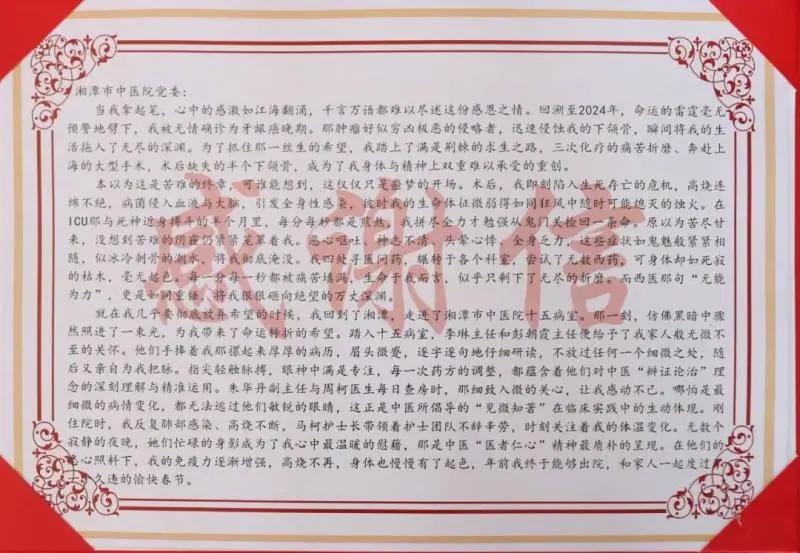 湘潭市中医院党委：
当我拿起笔，心中的感激如江海翻涌，千言万语都难以尽述这份感恩之情。回溯至2024年，命运的雷霆毫无
预警地劈下，我被无情确诊为牙龈癌晚期。那肿瘤好似穷凶极恶的侵略者，迅速侵蚀我的下颌骨，瞬间将我的生
活拖入了无尽的深渊。为了抓住那一丝生的希望，我踏上了满是荆棘的求生之路，三次化疗的痛苦折磨、奔赴上
海的大型手术，术后缺失的半个下颌骨，成为了我身体与精神上双重难以承受的重创。
本以为这是苦难的终章，可谁能想到，这仅仅只是噩梦的开场。术后，我即刻陷入生死存亡的危机，高烧连
绵不绝，病菌侵入血液与大脑，引发全身性感染，彼时我的生命体征微弱得如同狂风中随时可能熄灭的烛火。在
ICU那与死神近身搏斗的半个月里，每分每秒都是煎熬，我拼尽全力才勉强从鬼门关捡回一条命。原以为苦尽甘
来，没想到苦难的阴霾仍紧紧笼罩着我。恶心呕吐、神志不清、头晕心悸、全身乏力，这些症状如鬼魅般紧紧相
随，似冰冷刺骨的潮水，将我彻底淹没。我四处寻医问药，辗转于各个科室，尝试了无数西药，可身体却如死寂
的枯木，毫无起色。每一分每一秒都被痛苦填满，生命于我而言，似乎只剩下了无尽的折磨。而西医那句“无能
为力”，更是如同重锤，将我狠狠砸向绝望的万丈深渊。
就在我几乎要彻底放弃希望的时候，我回到了湘潭，走进了湘潭市中医院十五病室。那一刻，仿佛黑暗中骤
然照进了一束光，为我带来了命运转折的希望。踏入十五病室，李琳主任和彭朝霞主任便给予了我家人般无微不
至的关怀。他们手捧着我那摞起来厚厚的病历，眉头微蹙，逐字逐句地仔细研读，不放过任何一个细微之处，随
后又亲自为我把脉。指尖轻触脉搏，眼神中满是专注，每一次药方的调整，都蕴含着他们对中医“辨证论治”理
念的深刻理解与精准运用。朱华丹副主任与周柯医生每日查房时，那细致入微的关心，让我感动不已。哪怕是最
细微的病情变化，都无法逃过他们敏锐的眼睛，这正是中医所倡导的“见微知著”在临床实践中的生动体现。刚
住院时，我反复肺部感染、高烧不断，马柯护士长带领着护士团队不辞辛劳，时刻关注着我的体温变化。无数个
寂静的夜晚，她们忙碌的身影成为了我心中最温暖的慰藉，那是中医“医者仁心”精神最质朴的呈现。在他们的
心照料下，我的免疫力逐渐增强，高烧不再，身体也慢慢有了起色，年前我终于能够出院，和家人一起度过
久违的愉快春节。
感谢信